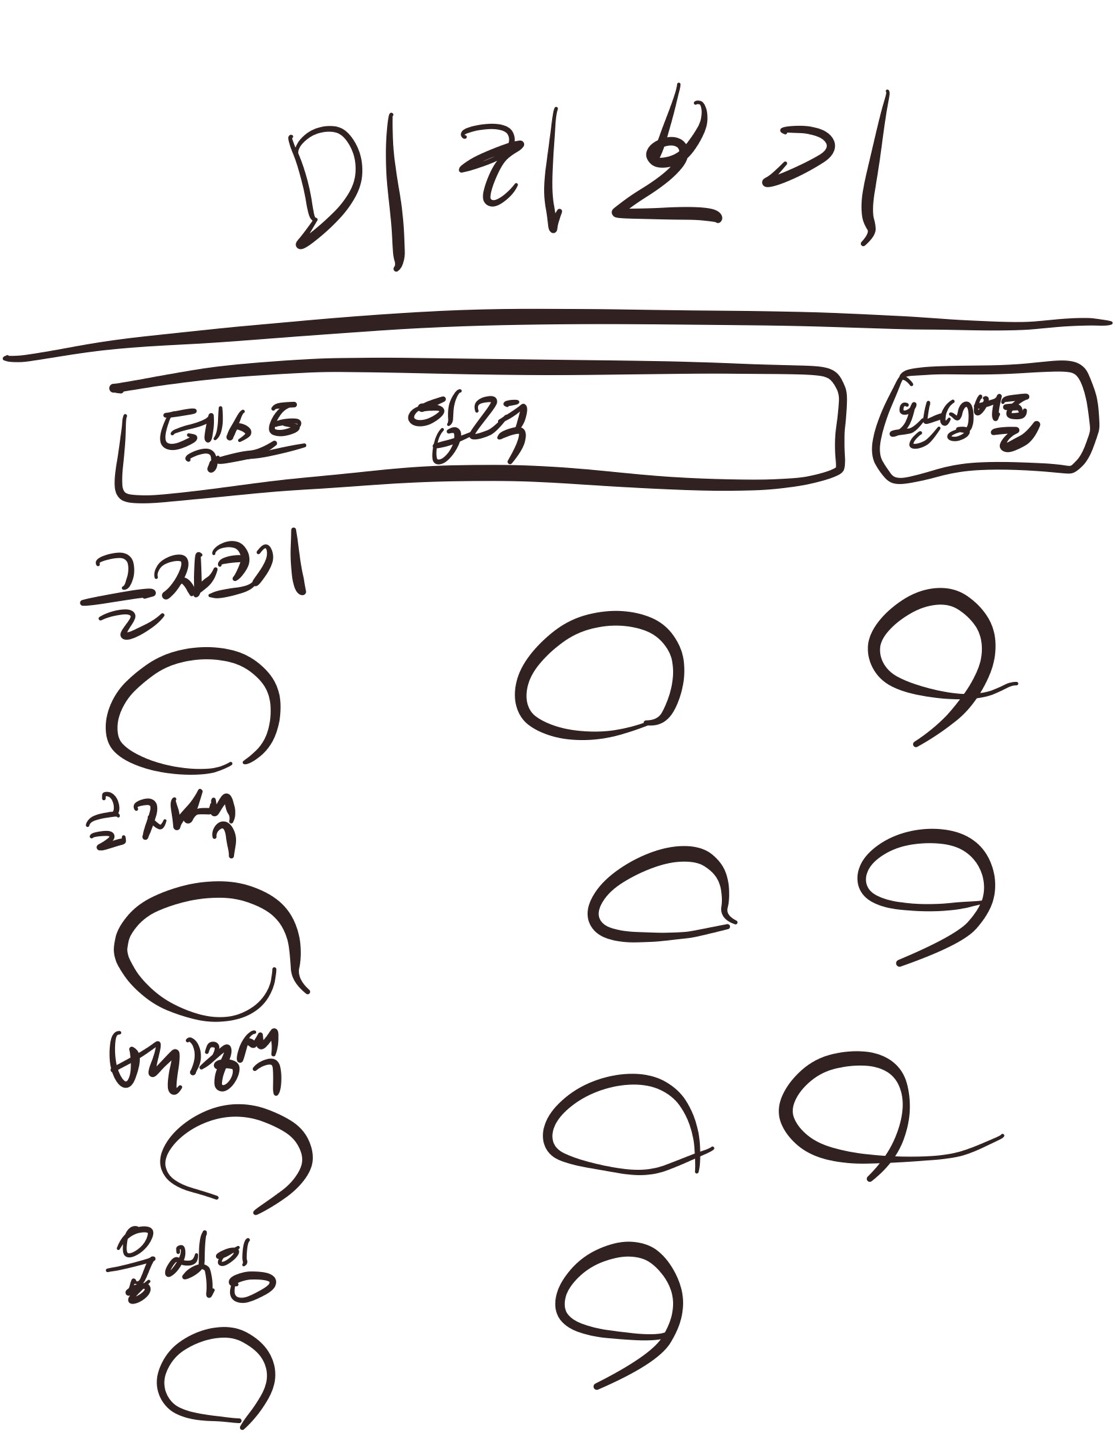 미리보기
텍스트 입력
완성버튼
글자크기
글자색
배경색
움직임